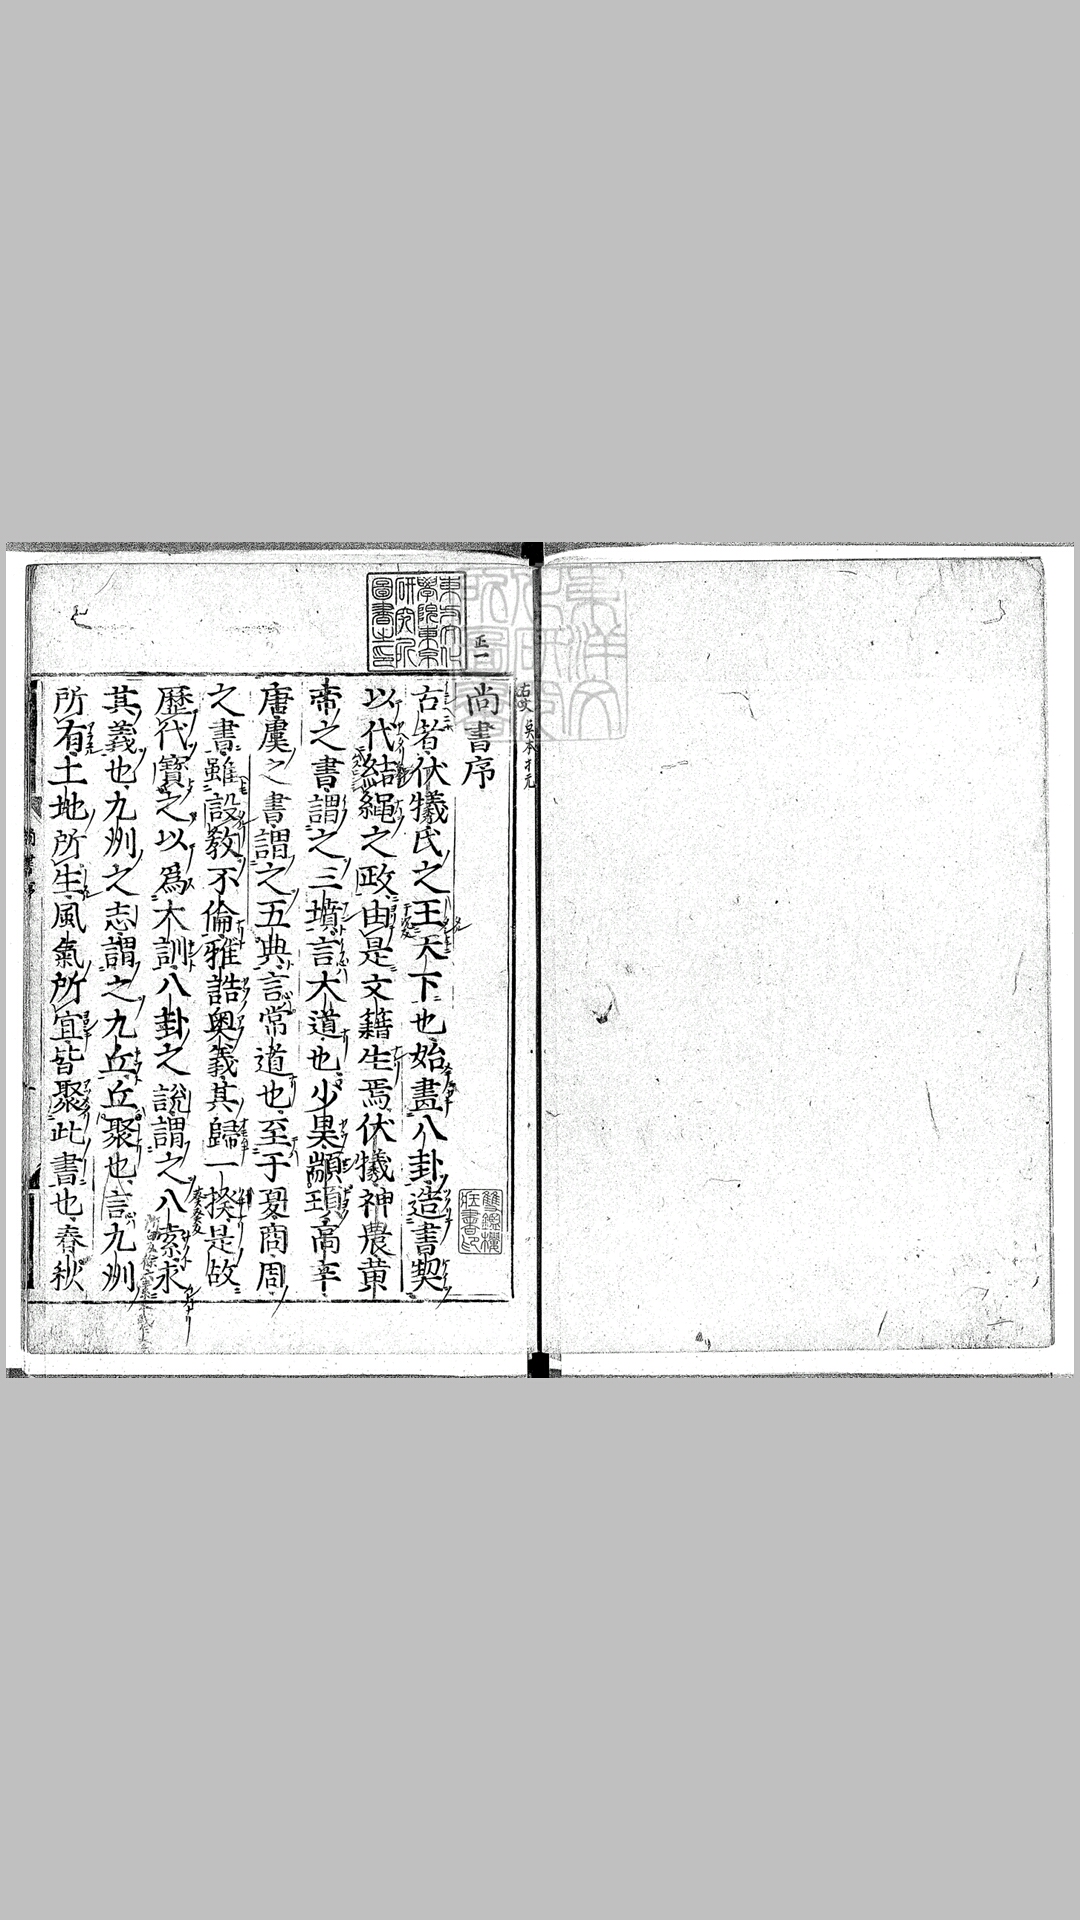 尚書序
古者伏犧氏之王天下也始畫八卦造書契
以代結繩之政由是文籍生焉伏犧神農黃
帝之書謂之三墳言大道也少昊顓頊高辛
唐虞之書謂之五典言常道也至于夏商周
之書雖設教不倫雅誥奧義其歸一揆是故
歷代寶之以爲大訓八卦之說謂之八索求
其義也九州之志謂之九丘丘聚也言九州
所有土地所生風氣所宜皆聚此書也春秋
東方文化
學院東京
研究所
圖書之印
雙鑑樓
藏書印